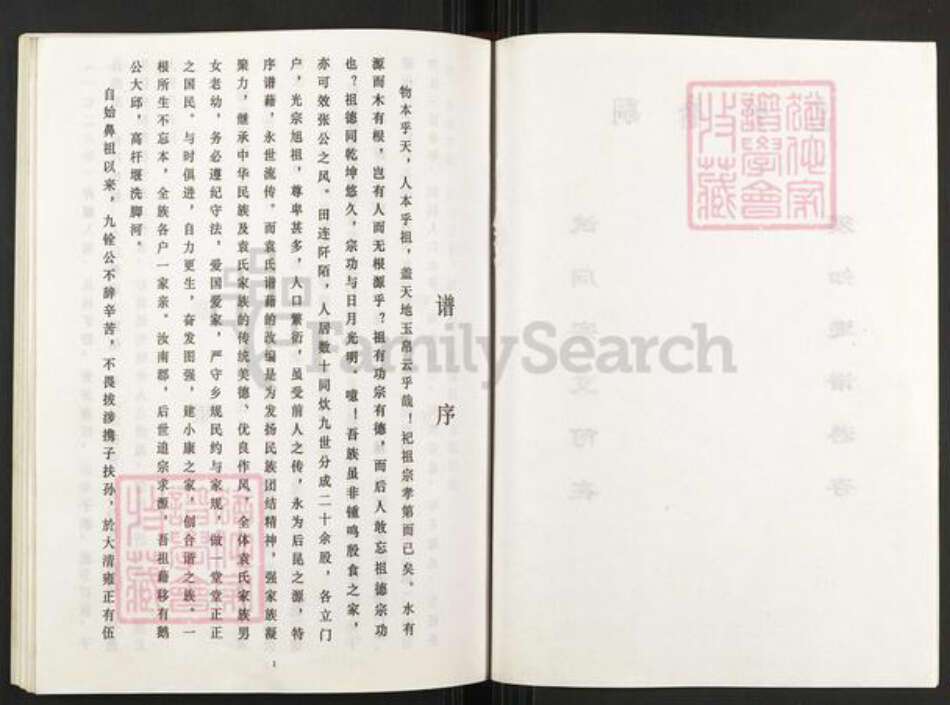 谱序
物本乎天，人本乎祖，盖天地玉帛云乎哉！祀祖宗孝第而已矣。水有
源而木有根，岂有人而无根源乎？祖有功宗有德，而后人敢忘祖德宗功
也？祖德同乾坤悠久，宗功与日月光明。噫！吾族虽非锺鸣殷食之家，
亦可效张公之风。田连阡陌，人居数十同炊九世分成二十余股，各立门
户，光宗旭祖，尊卑甚多，人口繁衍，虽受前人之传，永为后昆之源，特
序谱藉，永世流传。而袁氏谱藉的改编是为发扬民族团结精神，强家族凝
聚力，继承中华民族及袁氏家族的传统美德、优良作风，全体袁氏家族男
女老幼，务必遵纪守法，爱国爱家，严守乡规民约与家规，做一堂堂正正
之国民。与时俱进，自力更生，奋发图强，建小康之家，创合谐之族。一
根所生不忘本，全族各户一家亲。汝南郡，后世追宗求源，吾祖藉移有鹅
公大邱，高杆堰洗脚河。
自始鼻祖以来，九铨公不辞辛苦，不畏拔涉携子扶孙，於大清雍正有伍
1
FamilySearch
猶他家
譜學會
收藏
猶他家
譜學會
收藏